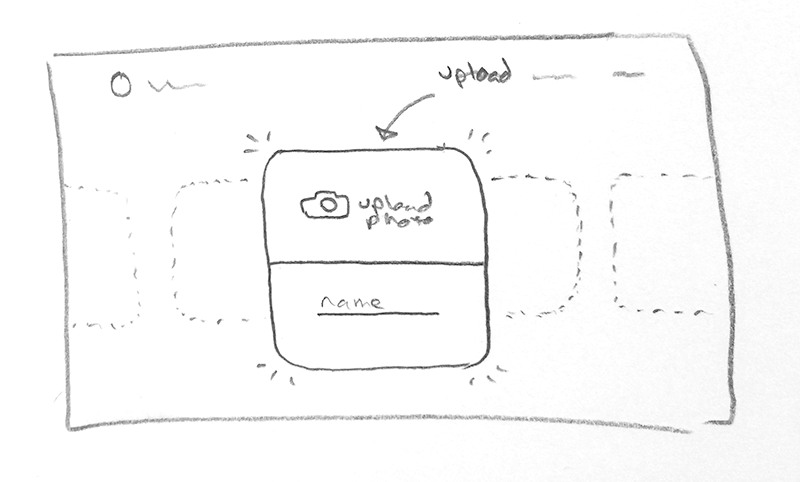 upload
upload
photo
name